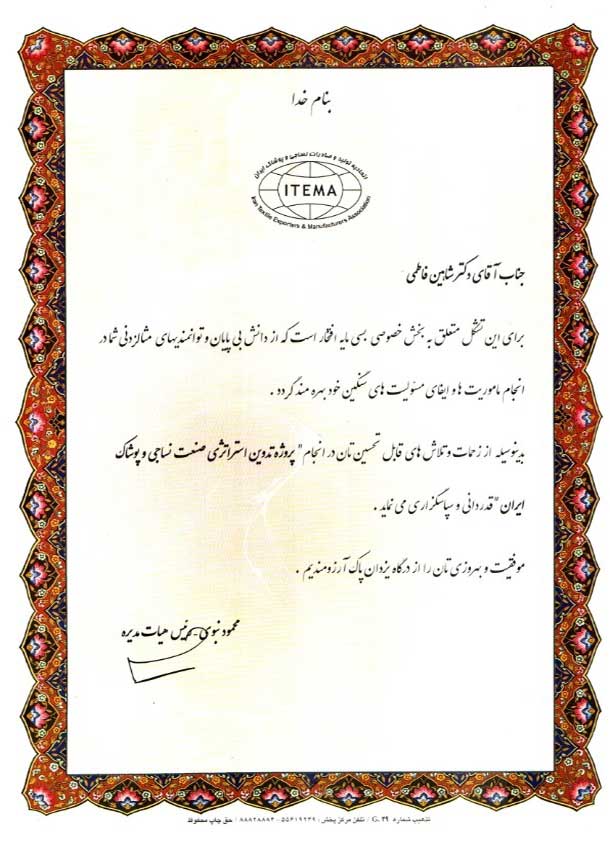 بنام خدا
اتحادیه تولید و صادرات نساجی و پوشاک ایران
ITEMA
Iran Textile Exporters & Manufacturers Association
جناب آقای دکتر شاهین فاطمی
برای این تشکل متعلق به بخش خصوصی بسی مایه افتخار است که از دانش بی پایان و توانمندیهای مثالزدنی شما در
انجام ماموریت ها و ایفای مسئولیت های سنگین خود بهره مند گردد .
بدینوسیله از زحمات و تلاش های قابل تحسین تان در انجام " پروژه تدوین استراتژی صنعت نساجی و پوشاک
ایران " قدردانی و سپاسگزاری می نماید .
موفقیت و بهروزی تان را از درگاه یزدان پاک آرزومندیم .
محمود نبوی - رئیس هیات مدیره
تذهیب شماره G.۳۹ / تلفن مرکز پخش : ۵۵۶۱۹۲۳۹-۸۸۸۲۸۸۸۳ / حق چاپ محفوظ